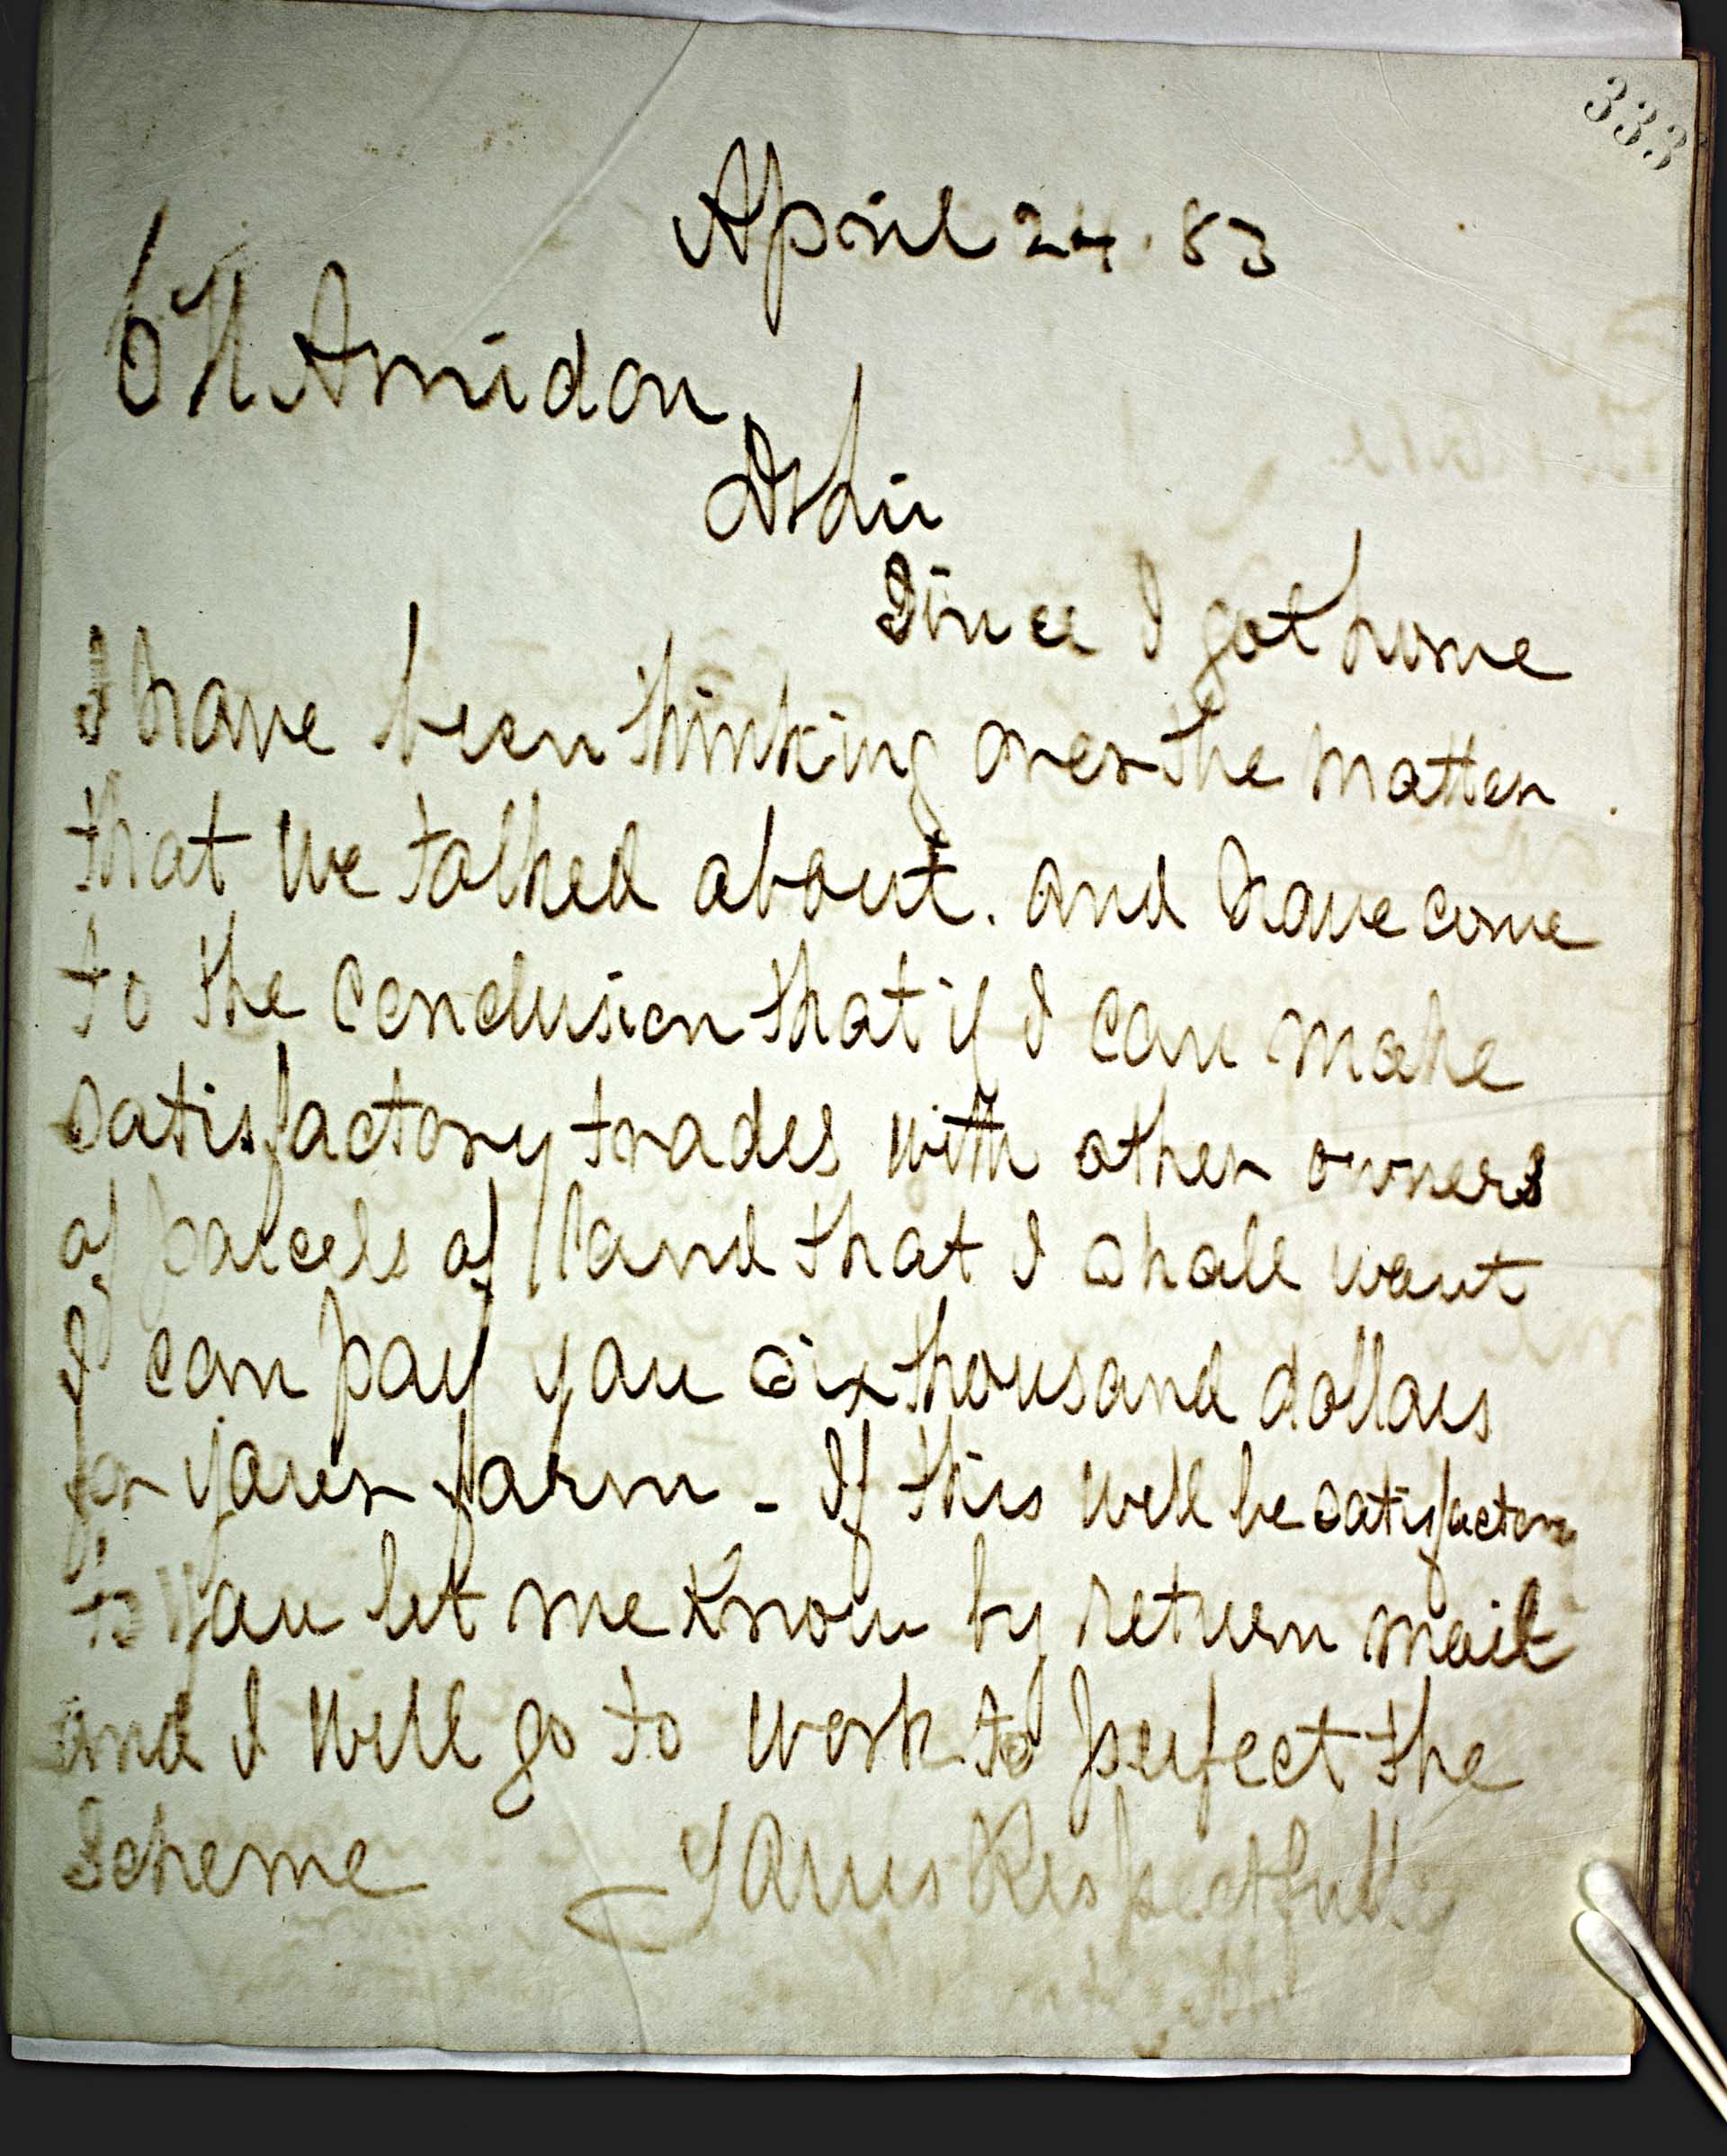 333
April 24. 83
Amidon
D Sir
Since I got home
I have been thinking over the matter
that we talked about. and have come
to the conclusion that if I can make
satisfactory trades with other owners
of parcels of land that I shall want
I can pay you six thousand dollars
for your farm - If this will be satisfactory
to you let me know by return mail
and I will go to work to perfect the
Scheme Yours Respectfully